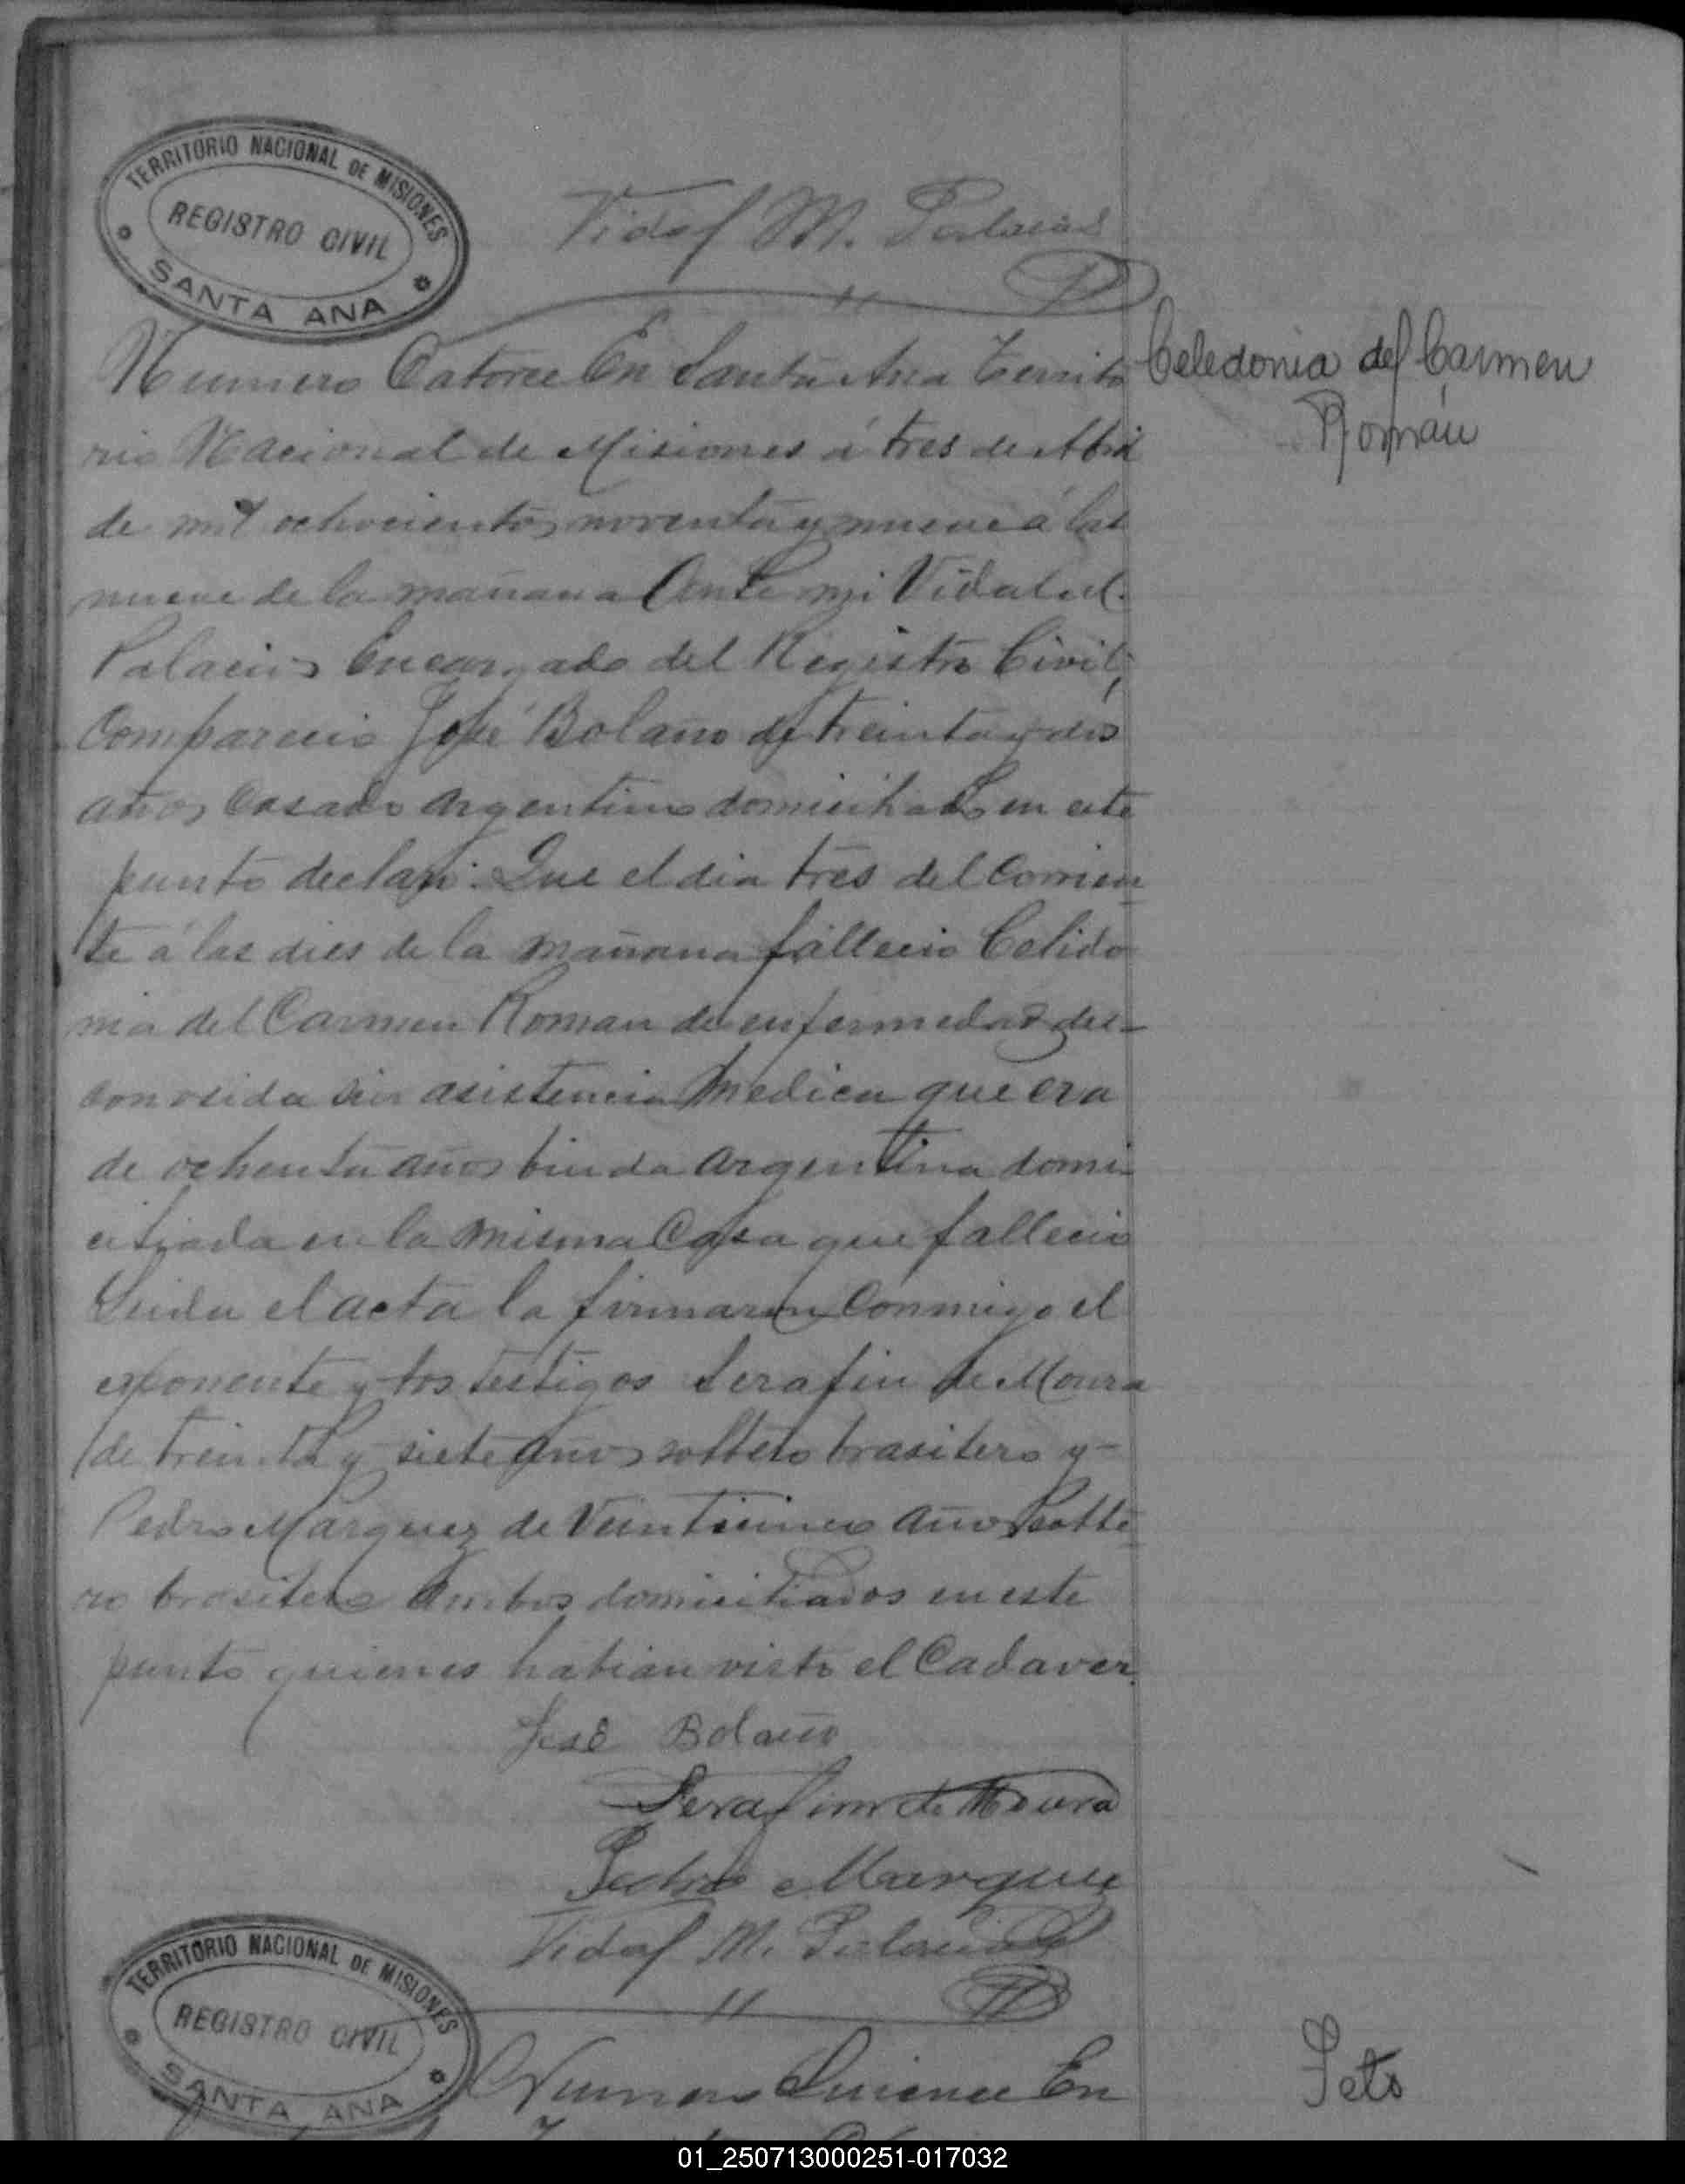 TERRITORIO NACIONAL DE MISIONES
REGISTRO CIVIL
SANTA ANA
Vidal M. Palacios
Numero Catorce En Santa Ana Territo
rio Nacional de Misiones á tres de Abril
de mil ochocientos noventa y nueve á las
nueve de la mañana Ante mi Vidal M.
Palacios Encargado del Registro Civil,
Comparecio José Bolaño de treinta y dos
años Casado Argentino domiciliado en este
punto declaró: Que el dia tres del corrien
te á las dies de la mañana fallecio Celido
nia del Carmen Roman de enfermedad des-
conosida sin asistencia Medica que era
de ochenta años biuda Argentina domi
ciliada en la misma Casa que fallecio
Leida el acta la firmaron Conmigo el
esponente y los testigos Serafin de Moura
de treinta y siete años soltero brasilero y-
Pedro Marquez de Veinticinco años solte-
ro brasilero Ambos domiciliados en este
punto quienes habian visto el Cadaver.
Celedonia del Carmen
Román
José Bolaño
Serafim de Moura
Pedro Marquez
Vidal M. Palacios
TERRITORIO NACIONAL DE MISIONES
REGISTRO CIVIL
SANTA ANA
Numero Quince En
Feto
01_250713000251-017032